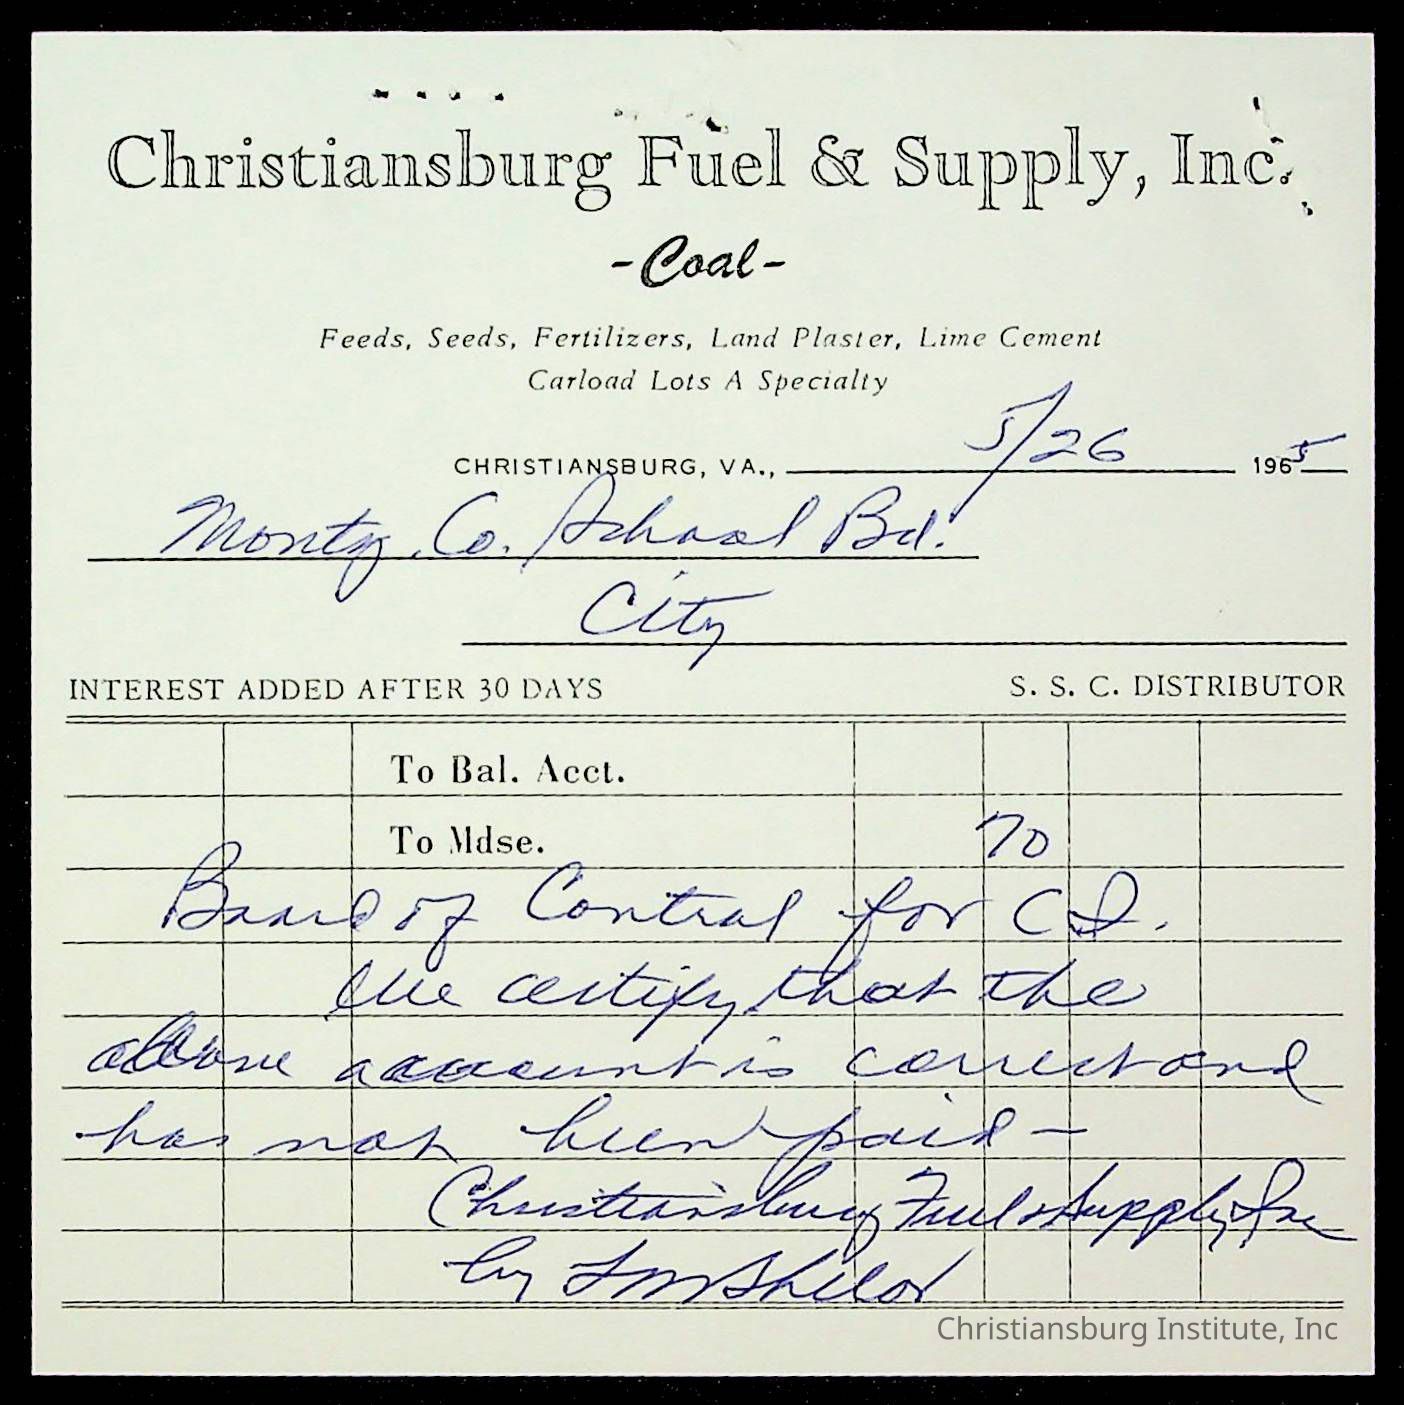 Christiansburg Fuel & Supply, Inc.
-Coal-
Feeds, Seeds, Fertilizers, Land Plaster, Lime Cement
Carload Lots A Specialty
CHRISTIANSBURG, VA., 5/26 1965
Montg. Co. School Bd.
City
INTEREST ADDED AFTER 30 DAYS S. S. C. DISTRIBUTOR
To Bal. Acct.
To Mdse. 70
Board of Control for C.I.
We certify that the
above account is correct and
has not been paid —
Christiansburg Fuel & Supply, Inc
by
Christiansburg Institute, Inc